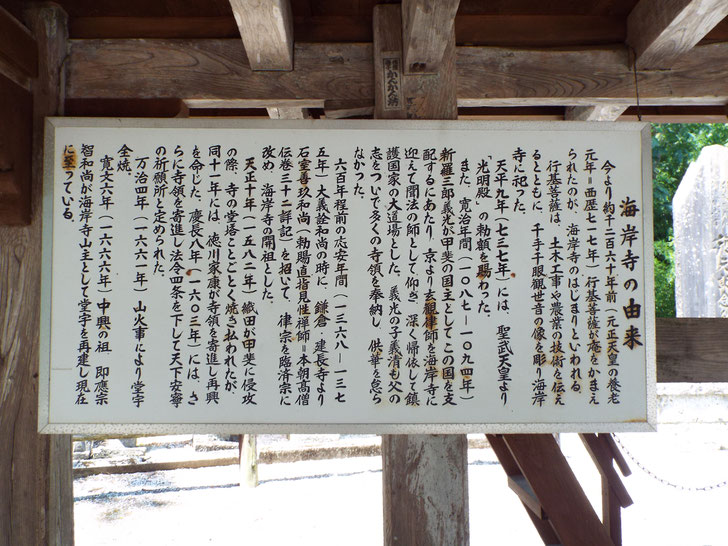 海岸寺の由来
今より約千二百六十年前（元正天皇の養老
元年＝西歴七一七年）行基菩薩が庵をかまえ
られたのが、海岸寺のはじまりといわれる。
行基菩薩は、土木工事や農業の技術を伝え
るとともに、千手千眼観世音の像を彫り海岸
寺に祀った。
天平九年（七三七年）には、聖武天皇より
光明殿、の勅額を賜わった。
また、寛治年間（一〇八七ー一〇九四年）
新羅三郎義光が甲斐の国主としてこの国を支
配するにあたり、京より玄観律師を海岸寺に
迎えて聞法の師として仰ぎ、深く帰依して鎮
護国家の大道場とした。義光の子義清も父の
志をついで多くの寺領を奉納し、供華を怠ら
なかった。
六百年程前の応安年間（一三六八ー一三七
五年）大義詮和尚の時に、鎌倉・建長寺より
石室善玖和尚（勅賜直指見性禅師＝本朝高僧
伝巻三十二詳記）を招いて、律宗を臨済宗に
改め、海岸寺の開祖とした。
天正十年（一五八二年）織田が甲斐に侵攻
の際、寺の堂塔ことごとく焼き払われたが、
同十一年には、徳川家康が寺領を寄進し再興
を命じた。慶長八年（一六〇三年）には、さ
らに寺領を寄進し法令四条を下して天下安寧
の祈願所と定められた。
万治四年（一六六一年）山火事により堂宇
全焼。
寛文六年（一六六六年）中興の祖　即應宗
智和尚が海岸寺山主として堂宇を再建し現在
に至っている。